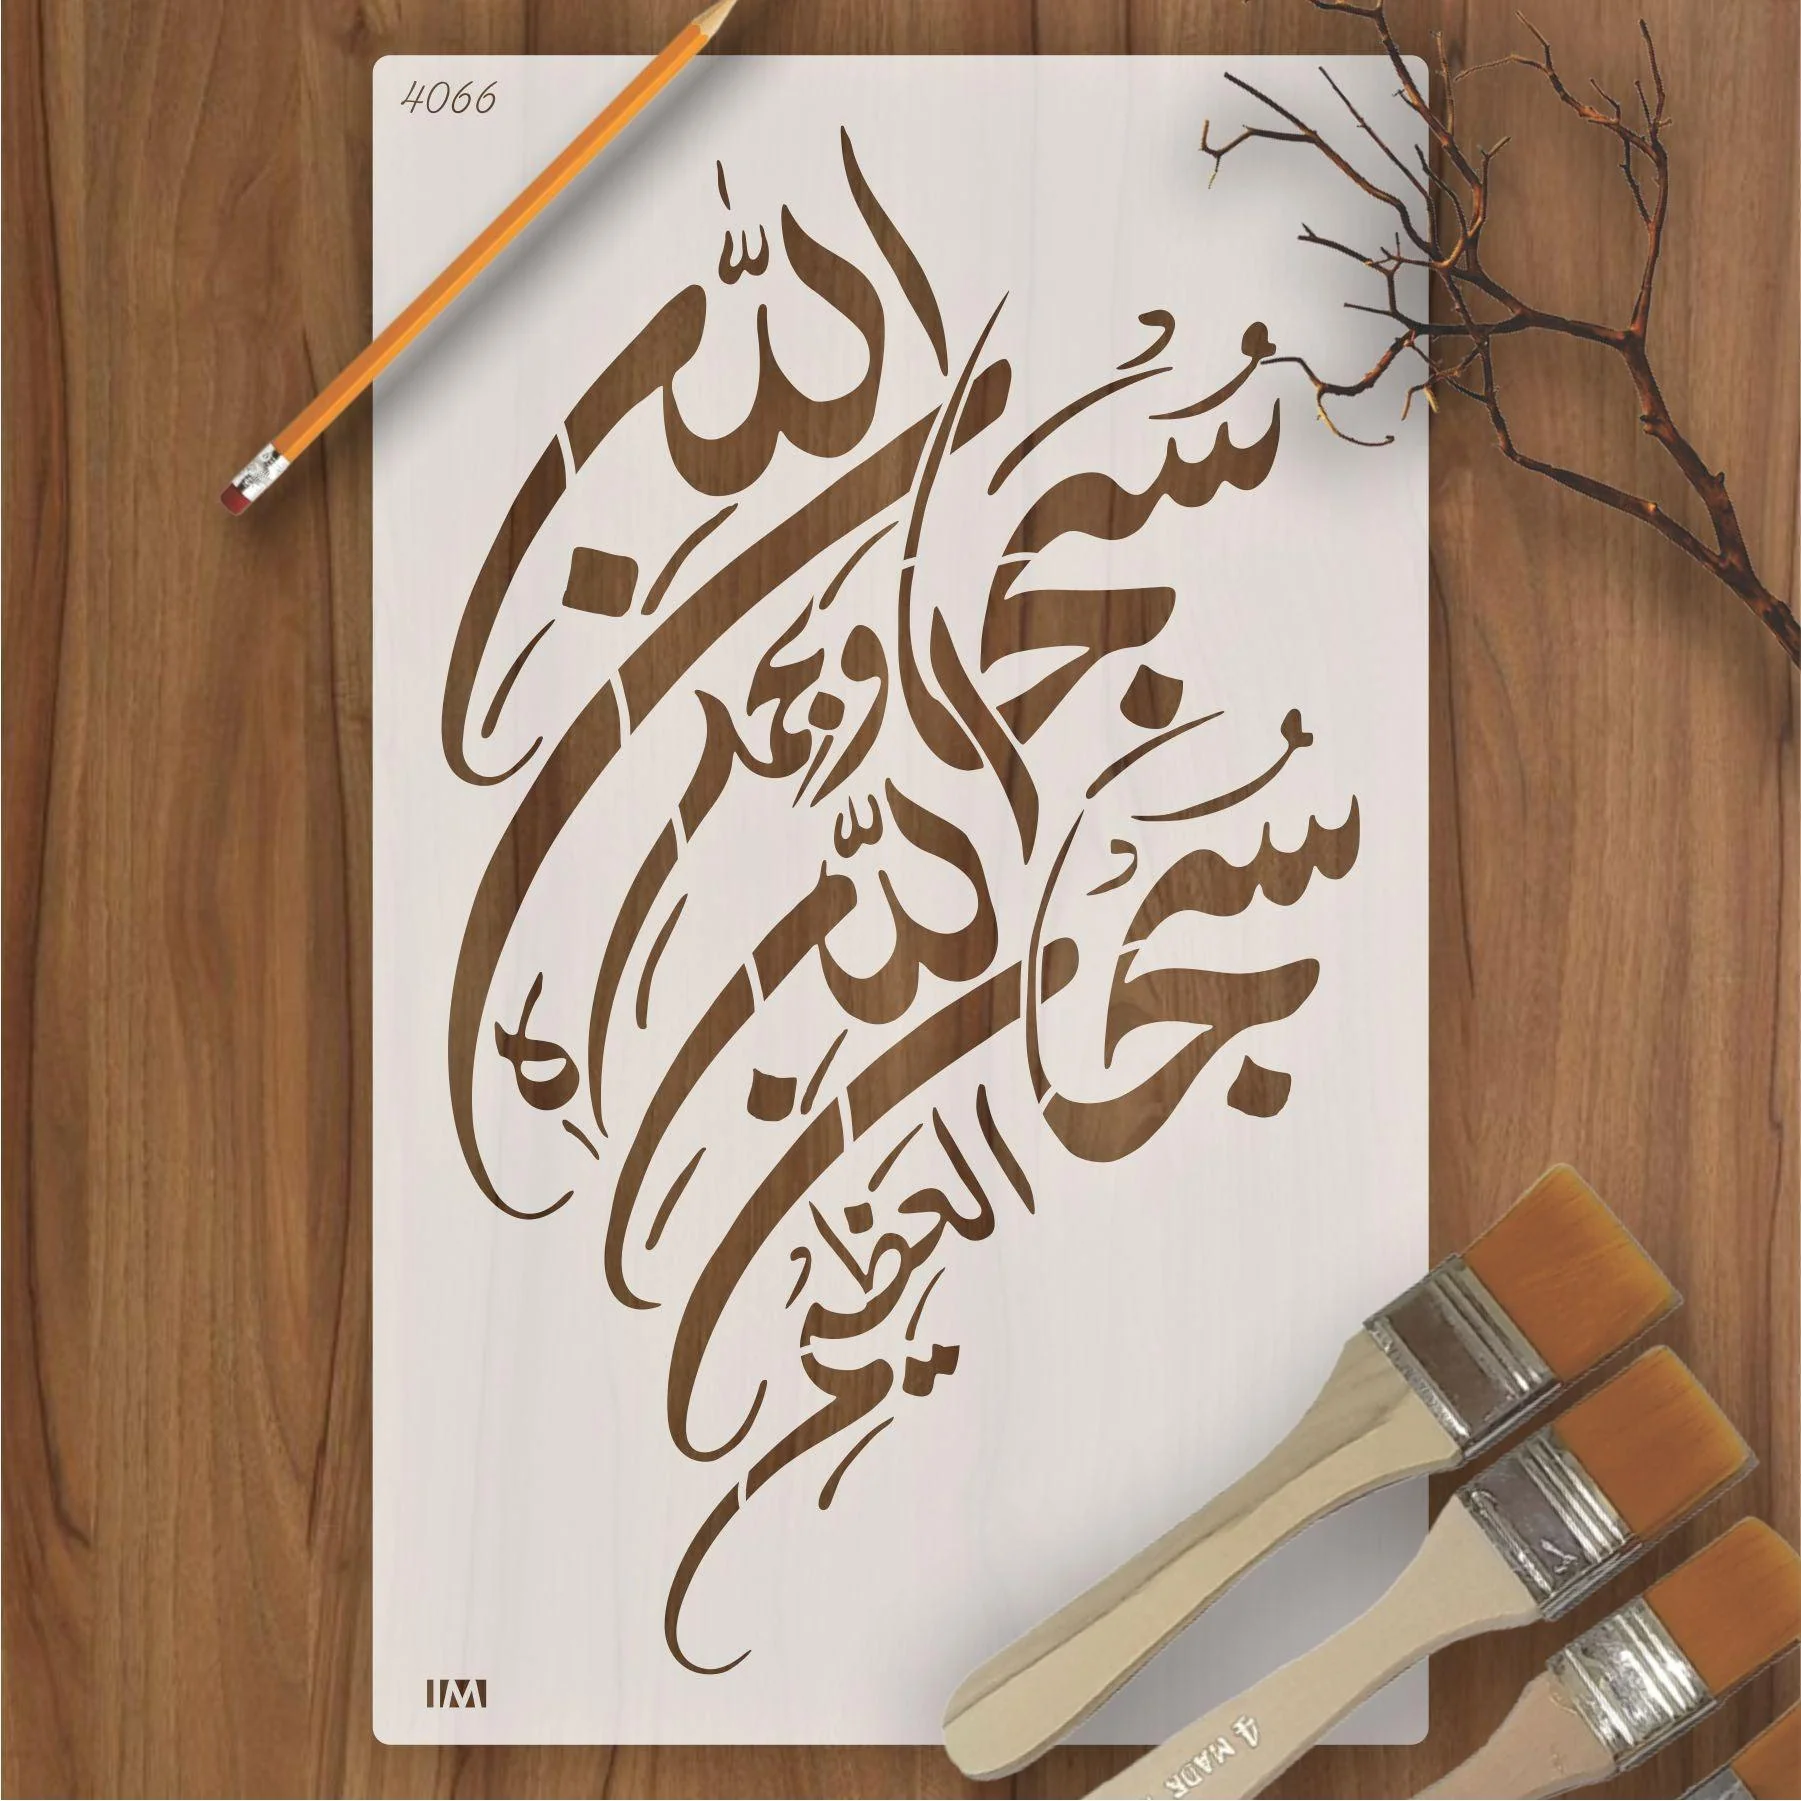 4066
سُبْحَانَ اللّٰهِ وَبِحَمْدِهِ
سُبْحَانَ اللّٰهِ الْعَظِيمِ
IIM
4 MADE